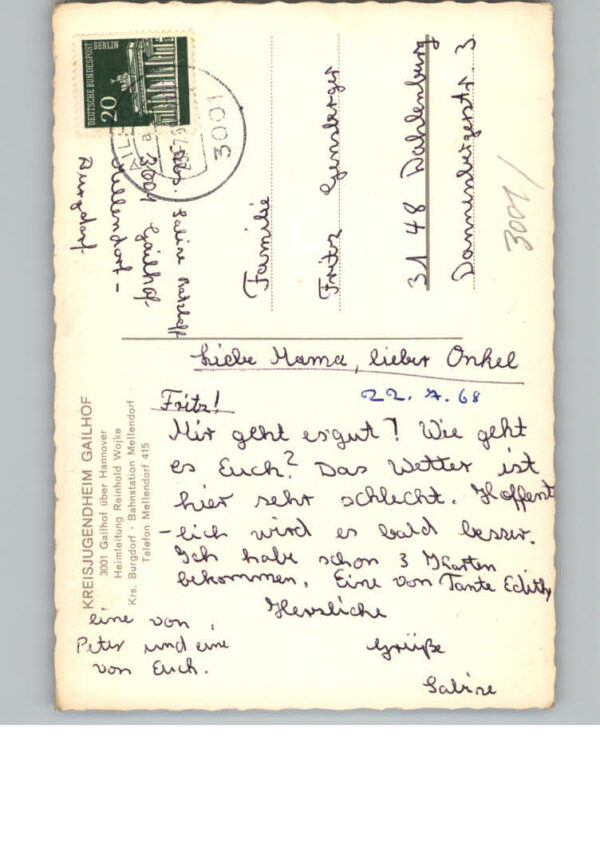 DEUTSCHE BUNDESPOST
BERLIN
20
3001
Sabine
3001 Gailhof
Mellendorf -
Burgdorf
Familie
Fritz
31 48 Dahlenburg
Dannenbergerstr. 3
3001/
KREISJUGENDHEIM GAILHOF
3001 Gailhof über Hannover
Heimleitung Reinhold Wojke
Krs. Burgdorf · Bahnstation Mellendorf
Telefon Mellendorf 415
Liebe Mama, lieber Onkel
Fritz!
22. 7. 68
Mir geht es gut! Wie geht
es Euch? Das Wetter ist
hier sehr schlecht. Hoffent
-lich wird es bald besser.
Ich habe schon 3 Karten
bekommen. Eine von Tante Edith,
eine von
Peter und eine
von Euch.
Herzliche
Grüße
Sabine